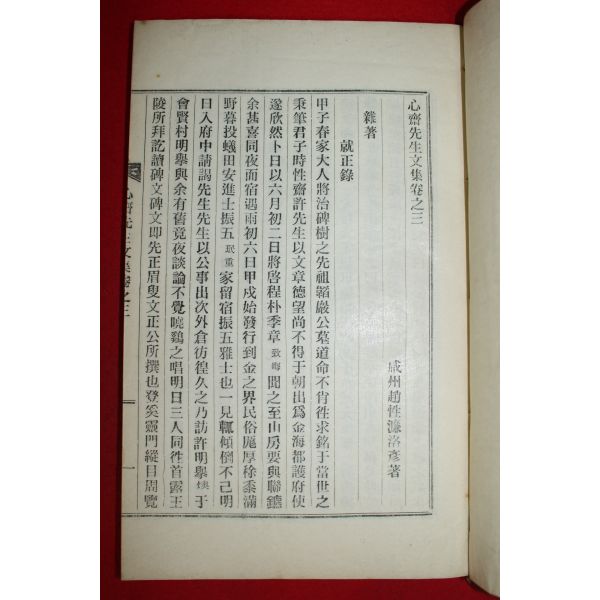 心齋先生文集卷之三
咸州趙性濂洛彦著
雜著
就正錄
甲子春家大人將治碑樹之先祖韜巖公墓道命不肖徃求銘于當世之
秉筆君子時性齋許先生以文章德望尚不得于朝出爲金海都護府使
遂欣然卜日以六月初二日將啓程朴季章致晦聞之至山房要與聯鑣
余甚喜同夜而宿遇雨初六日甲戌始發行到金之界民俗厖厚稌黍滿
野暮投蟻田安進士振五珉重家留宿振五雅士也一見輒傾倒不己明
日入府中請謁先生先生以公事出次外倉彷徨久之乃訪許明擧燠于
會賢村明擧與余有舊竟夜談論不覺曉鷄之唱明日三人同徃首露王
陵所拜訖讀碑文碑文即先正眉叟文正公所撰也登矣靈門縱目周覽
心齋先生文集卷之三
一